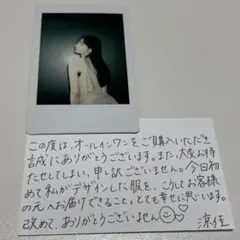 この度は、オールインワンをご購入いただき
誠にありがとうございます。また、大変お待
たせしてしまい、申し訳ございません。今回初
めて私がデザインした服を、こうしてお客様
の元へお届けできること、とても幸せに思います。
改めて、ありがとうございません
涼佳